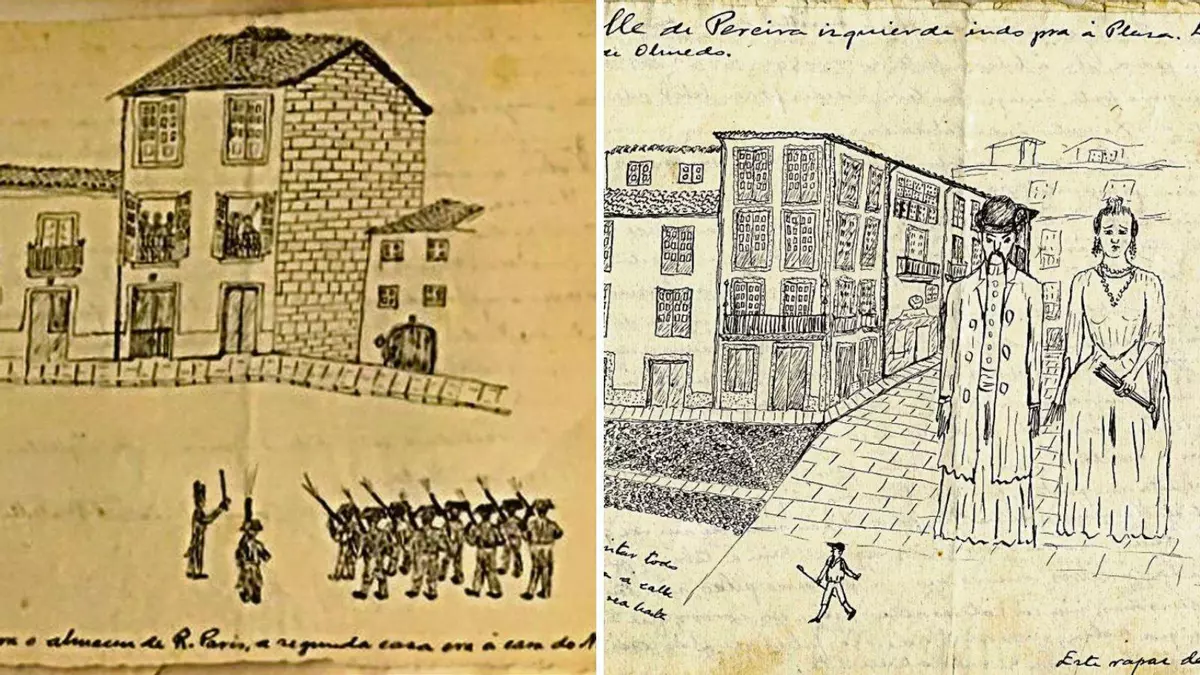 ra o almacen de R. Paris, a segunda casa era à casa do
lle de Pereira izquierda indo pra à Plasa.
de Olmedo.
todo
a calle
Este rapas de